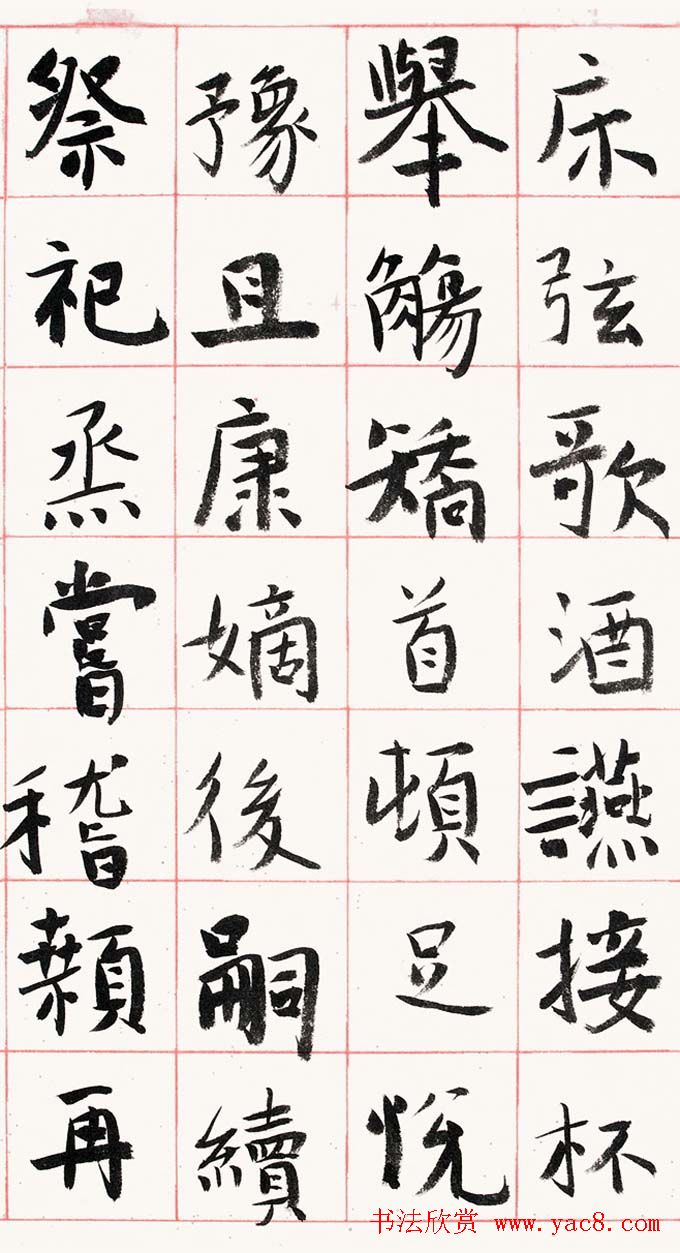 床弦歌酒讌接杯
舉觴矯首頓足悅
豫且康嫡後嗣續
祭祀烝嘗稽顙再
书法欣赏 www.yac8.com